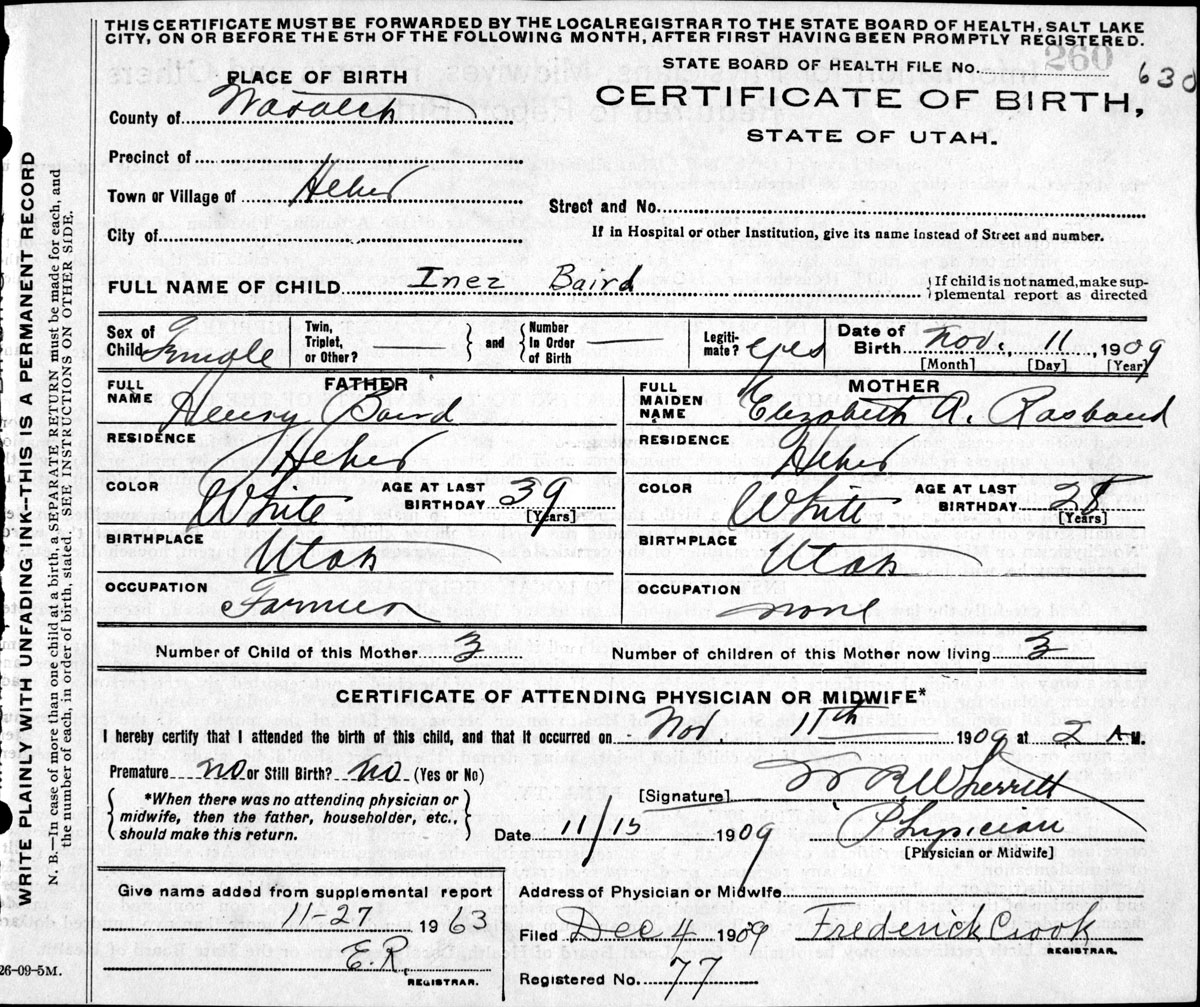 THIS CERTIFICATE MUST BE FORWARDED BY THE LOCAL REGISTRAR TO THE STATE BOARD OF HEALTH, SALT LAKE
CITY, ON OR BEFORE THE 5TH OF THE FOLLOWING MONTH, AFTER FIRST HAVING BEEN PROMPTLY REGISTERED.
STATE BOARD OF HEALTH FILE No. 260 630
CERTIFICATE OF BIRTH,
STATE OF UTAH.
PLACE OF BIRTH
County of Wasatch
Precinct of
Town or Village of Heber
Street and No.
City of
If in Hospital or other Institution, give its name instead of Street and number.
FULL NAME OF CHILD Inez Baird
If child is not named, make sup-
plemental report as directed
Sex of Child Female
Twin, Triplet, or Other? —
and
Number In Order of Birth —
Legiti-mate? yes
Date of Birth Nov. 11, 1909
[Month] [Day] [Year]
FATHER
FULL NAME Henry Baird
RESIDENCE Heber
COLOR White
AGE AT LAST BIRTHDAY 39
[Years]
BIRTHPLACE Utah
OCCUPATION Farmer
MOTHER
FULL MAIDEN NAME Elizabeth A. Rasband
RESIDENCE Heber
COLOR White
AGE AT LAST BIRTHDAY 28
[Years]
BIRTHPLACE Utah
OCCUPATION none
Number of Child of this Mother 3
Number of children of this Mother now living 3
CERTIFICATE OF ATTENDING PHYSICIAN OR MIDWIFE*
I hereby certify that I attended the birth of this child, and that it occurred on Nov 11th 1909 at 2 A M.
Premature no or Still Birth? no (Yes or No)
*When there was no attending physician or
midwife, then the father, householder, etc.,
should make this return.
[Signature] W R Wherritt
Date 11/15 1909 Physician
[Physician or Midwife]
Give name added from supplemental report
11-27 1963
E.R.
REGISTRAR.
Address of Physician or Midwife
Filed Dec 4 1909 Frederick Crook
REGISTRAR.
Registered No. 77
WRITE PLAINLY WITH UNFADING INK—THIS IS A PERMANENT RECORD
N. B.—In case of more than one child at a birth, a SEPARATE RETURN must be made for each, and
the number of each, in order of birth, stated. SEE INSTRUCTIONS ON OTHER SIDE.
26-09-5M.